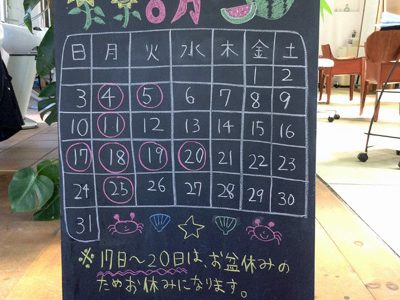 8月
日 月 火 水 木 金 土
1 2
3 4 5 6 7 8 9
10 11 12 13 14 15 16
17 18 19 20 21 22 23
24 25 26 27 28 29 30
31
※17日〜20日は、お盆休みの
ためお休みになります。